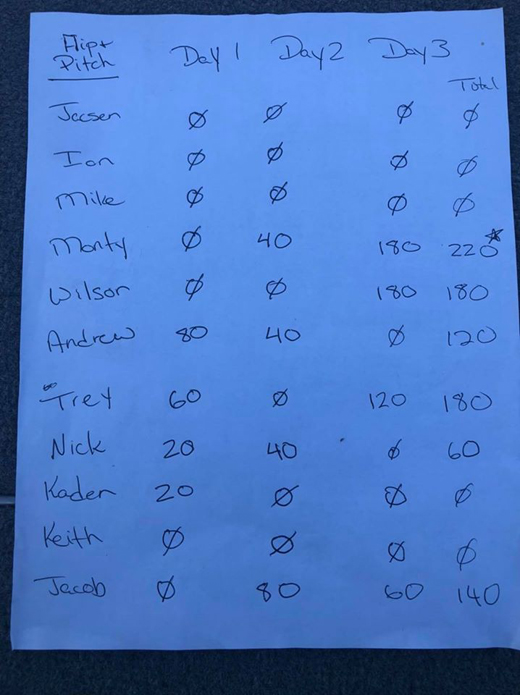 Flip+ Day 1 Day 2 Day 3
Pitch
Total
Jacsen Ø Ø Ø Ø
Ian Ø Ø Ø Ø
Mike Ø Ø Ø Ø
Monty Ø 40 180 220*
Wilson Ø Ø 180 180
Andrew 80 40 Ø 120
Trey 60 Ø 120 180
Nick 20 40 Ø 60
Kaden 20 Ø Ø Ø
Keith Ø Ø Ø Ø
Jacob Ø 80 60 140